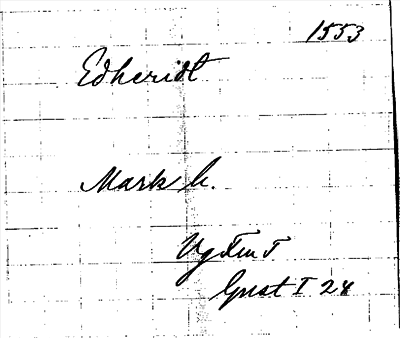 1553
Edheridt
Mark h.
Vg Fmt
Gust I 28